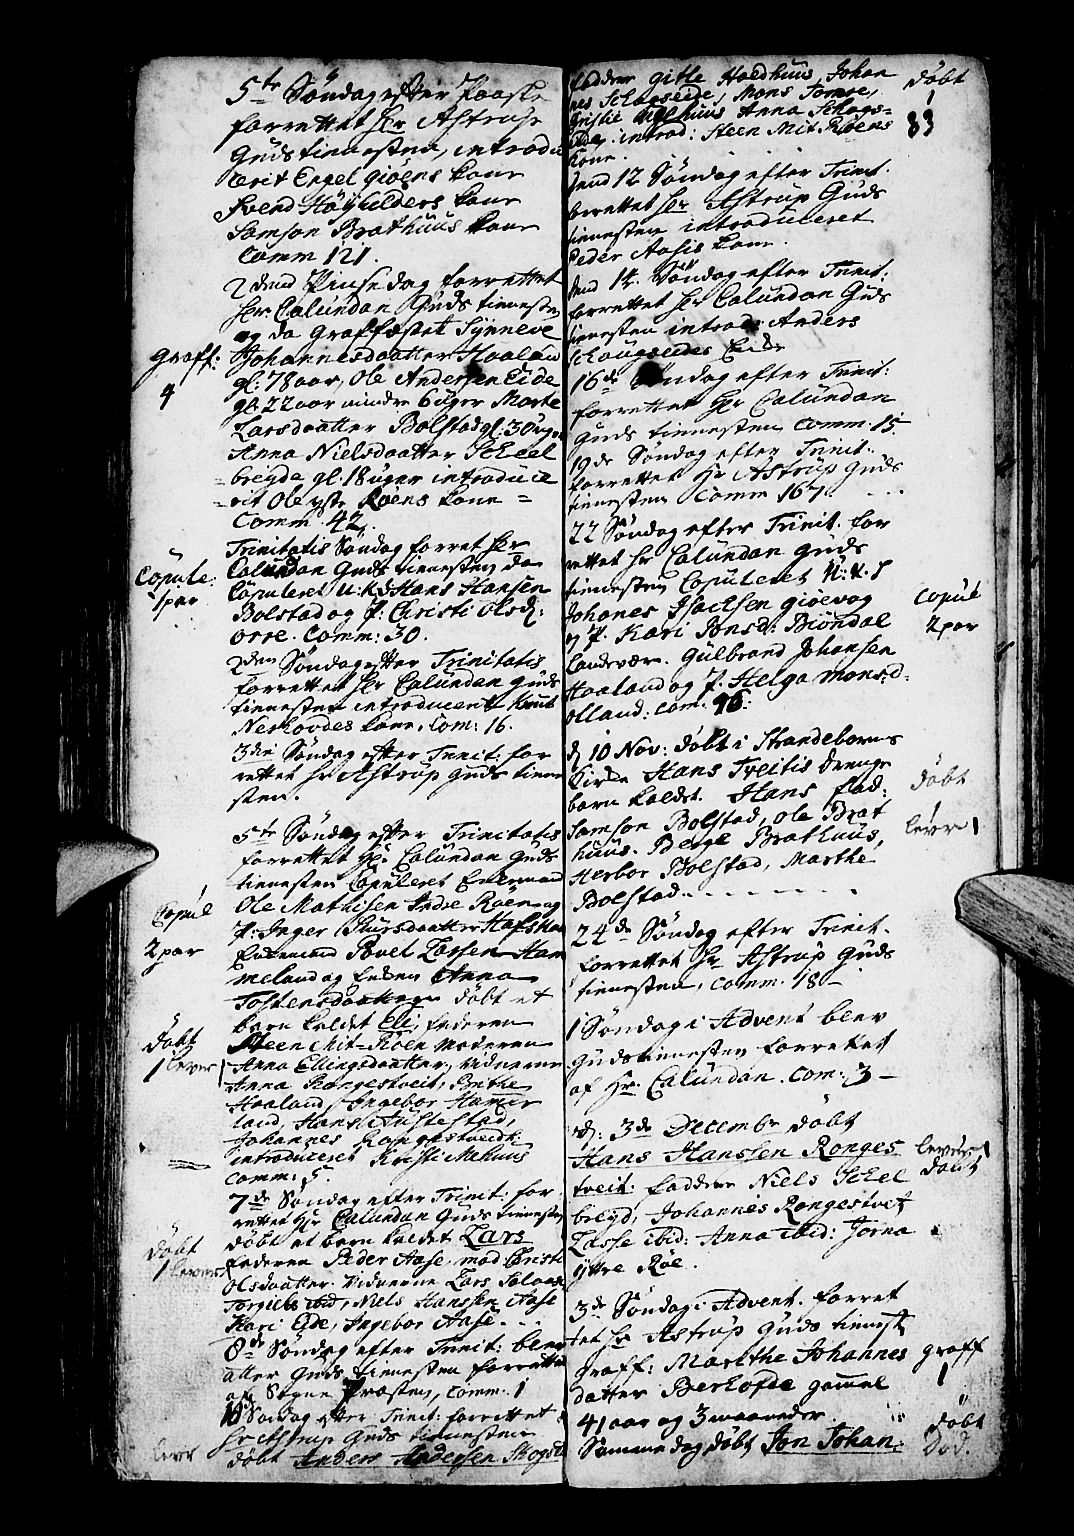 5te Søndag efter Paaske
forrettet Hr Astrup
Guds tienesten, introdu
cerit Engel giøens kone
Svend Høyhilders kone
Samson Brathuus kone
Comm 121.
2dend Pinsedag forrettet
Hr. Calundan Guds tienesten
og da Graffæstet Synneve
Graff:
4
Johannesdaatter Haaland
gl: 78 aar, Ole Andersen Eide
gl: 22 aar mindre 6 uger Marte
Larsdaatter Bolstad gl: 3 Uger
Anna Nielsdaatter Scheel
bregda gl: 18 uger introduce
rit Ole ystr Røens kone
Comm. 42.
Trinitatis Søndag forret Hr
Copule:
1 par
Calundan Guds tienesten da
Copuleret u: k: Hans Hansen
Bolstad og P: Christi Olsd:
orre. Comm: 30.
2den Søndag efter Trinitatis
forrettet Hr Calundan Guds
tienesten introduceret Knut
Neshovdes kone, Com: 16.
3die Søndag efter Trinit: for
rettet Hr Astrup Guds tiene
sten.
5te Søndag efter Trinitatis
forrettet Hr. Calundan Guds
tienesten Copuleret Enkemand
Copul
2 par
Ole Mathisen Indre Røen og
P: Inger Siursdaatter Hafskaa
Enkemand Povel Larsen Ham
meland og Enken Anna
Tostensdaatter døbt et
barn kaldet Eli, faderen
døbt
1 lever
Steen Mit-Røen Moderen
Anna Ellingsdaatter, Vidnerne
Anna Rongestveit, Brithe
Haaland, Ingebor Hamer
land, Hans Tustestad,
Johannes Rongestveidt
introduceret Kristi Mehuus
Comm: 5.
7de Søndag efter Trinit: for
rettet Hr Calundan Guds tienesten
døbt
1 lever
døbt et barn kaldet Lars
faderen Peder Aase, mod Christi
Olsdaatter. Vidnerne Lars
Torgiels ibid, Niels Hanssen Aase
Kari Eide, Ingebor Aase.
8de Søndag efter Trinit: blev
aller Guds tienesten forrettet
af Sogne Præsten, comm: 1
10 Søndag efter Trinit: forrettet
Hr Astrup Guds tienesten
lever
døbt Anders Andersen Skogs
faddere gitle Haedhuus, Johan
døbt
1
33
nes Schogseide, Mons Tomre,
Kristie Mehuus Anna Schogs=
Eide, introd: Steen Mit Røens
kone.
dend 12 Søndag efter Trinit.
forrettet Hr Astrup Guds
tienesten introduceret
Peder Aasis kone.
dend 14. Søndag efter Trinit:
forrettet Hr Calundan Guds
tienesten introd: Anders
Schougseides
16de Søndag efter Trinit:
forrettet Hr Calundan
Guds tienesten comm: 15.
19de Søndag efter Trinit.
forrettet Hr Astrup Guds
tienesten Comm 167.
22 Søndag efter Trinit. for
rettet Hr Calundan Guds
tienesten Copuleret
Copul
2 par
Johanes Isachsen giøevog
og P. Kari Jonsd: Biöndal
Landevær. Gulbrand Johansen
Haaland og P. Helga Monsd:
Olland: com: 96:
d 10 Nov: døbt i Strandebarms
Kirke Hans Treitis drenge
døbt
lever 1
barn kaldet. Hans fad:
Samson Bolstad, Ole Brat
huus. Berge Brathuus,
Herbor Bolstad, Marthe
Bolstad.
24de Søndag efter Trinit.
forrettet Hr Astrup Guds
tienesten, comm. 18
1 Søndag i Advent blev
Gudstienesten forrettet
af Hr: Calundan. com: 3
d: 3de Decembr døbt
Hans Hanssen Ronges
lever 1
døbt
tveit: faddere Niels Schel
bregd, Johannes Rongestvet
Lasse ibid: Anna ibid: Jorna
yttre Røe.
3de Søndag i Advent. forret
tet Hr Astrup Guds tienest
graff: Marithe Johannes
graff
1
datter Berkofde gamel
41 aar og 3 maaneder.
Samme dag døbt Jon Johan:
døbt
Död.